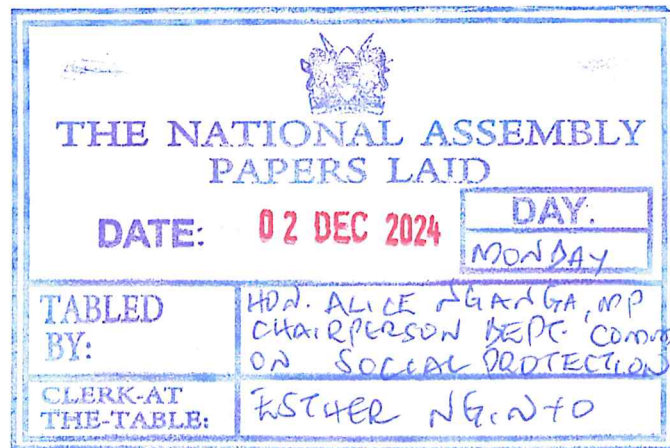 THE NATIONAL ASSEMBLY
PAPERS LAID
DATE: 02 DEC 2024
DAY.
MONDAY
TABLED BY:
HON. ALICE NGANGA, MP
CHAIRPERSON DEPT. COMM
ON SOCIAL PROTECTION
CLERK-AT THE-TABLE:
ESTHER NGINYO